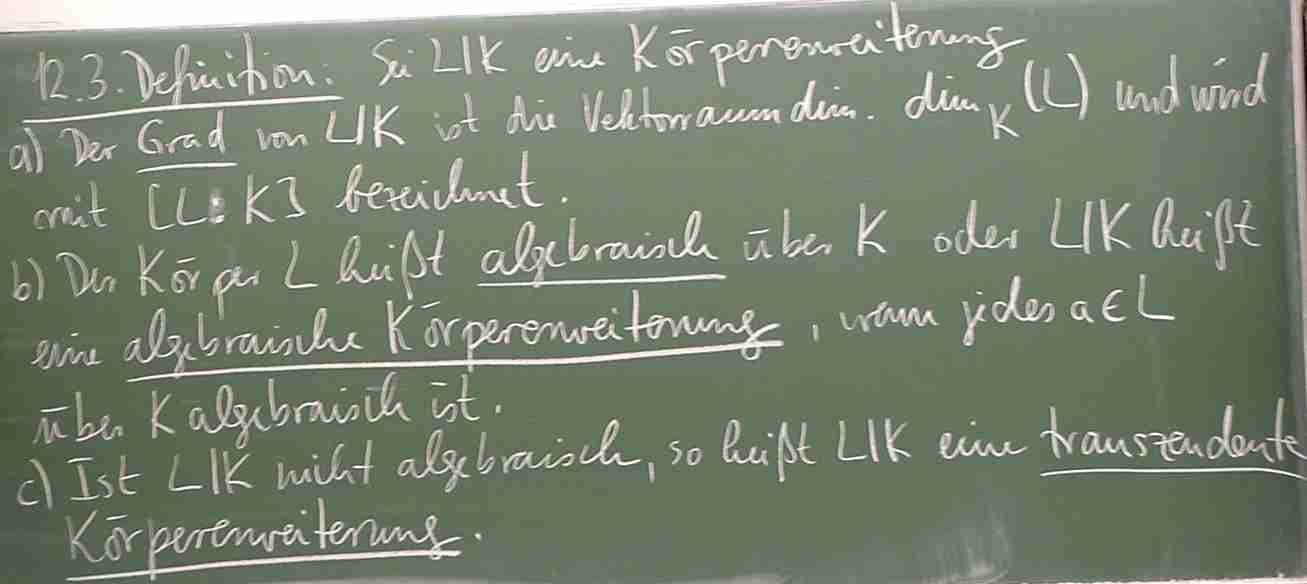 12.3. Definition: Sei L|K eine Körpererweiterung
a) Der Grad von L|K ist die Vektorraumdim. dim_K (L) und wird
mit [L:K] bezeichnet.
b) Der Körper L heißt algebraisch über K oder L|K heißt
eine algebraische Körpererweiterung, wenn jedes a ∈ L
über K algebraisch ist.
c) Ist L|K nicht algebraisch, so heißt L|K eine transzendente
Körpererweiterung.